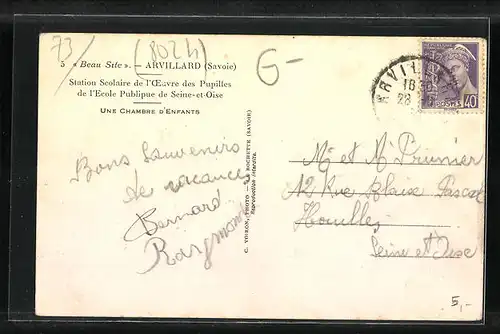 73/
(8024)
G-
5 « Beau Site ». — ARVILLARD (Savoie)
Station Scolaire de l'Œuvre des Pupilles
de l'École Publique de Seine-et-Oise
UNE CHAMBRE D'ENFANTS
Bons Souvenirs
de vacances
Bernard
Raymond
C. VOIRON, PHOTO — LA ROCHETTE (SAVOIE)
Reproduction interdite.
ARVILLARD
40
Mr et Mme Prunier
12 Rue Blaise Pascal
Houilles
Seine et Oise
5,-